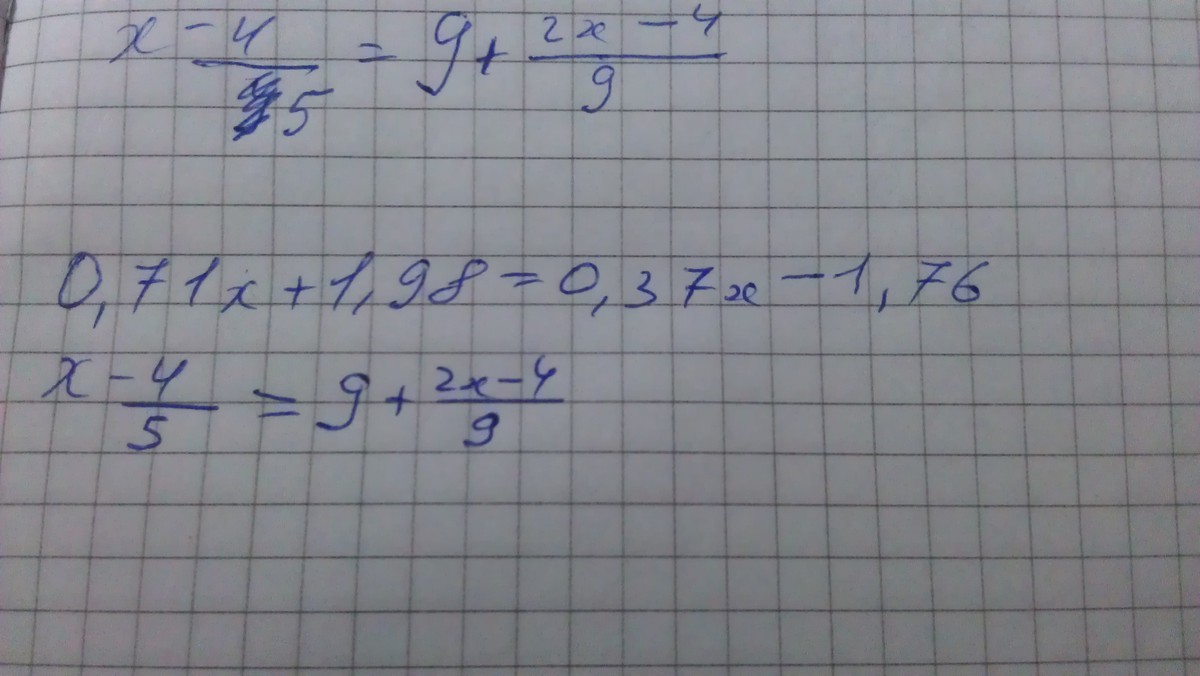 x - 4/5 = 9 + (2x - 4)/9
0,71x + 1,98 = 0,37x - 1,76
x - 4/5 = 9 + (2x - 4)/9